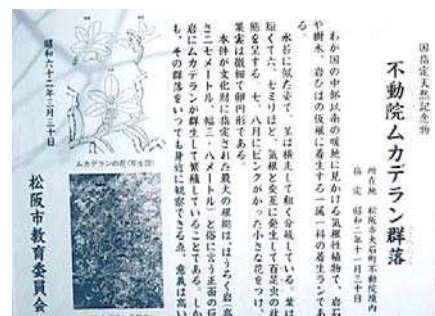 国指定天然記念物
不動院ムカデラン群落
所在地 松阪市大石町不動院境内
指定 昭和二年十一月三十日
わが国の中部以南の暖地に見かける気根性植物で、岩石
や樹木、岩ひばの仮根に着生する一属一科の着生ランであ
る。
水苔に似た姿で、茎は横走して粗く分岐している。葉は
短くて六、七ミリほど、気根と交互に発生して百足虫の
態を呈する。七、八月にピンクがかった小さな花をつけ、
果実は微細で卵円形である。
本件が文化財に指定された最大の根拠は、ほうろく岩(高
さ二七メートル、幅三・八メートル)と俗に言う正面の巨
岩にムカデランが群生して繁殖していることである。しか
も、その群落をいつでも身近に観察できる点、意義は高い
昭和六十二年三月三十日
松阪市教育委員会
ムカデランの花(写生図)